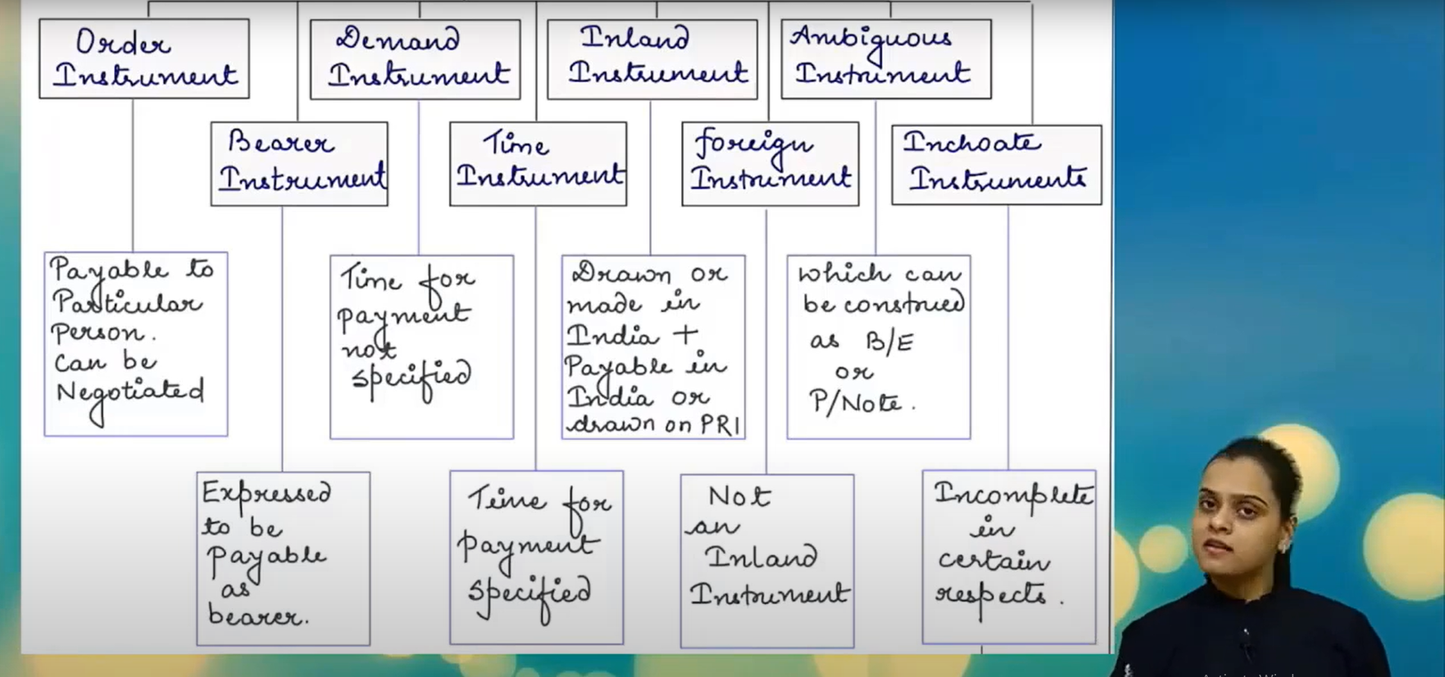 Order
Instrument
Demand
Instrument
Inland
Instrument
Ambiguous
Instrument
Bearer
Instrument
Time
Instrument
foreign
Instrument
Inchoate
Instruments
Payable to
Particular
Person.
Can be
Negotiated
Time for
payment
not
specified
Drawn or
made in
India +
Payable in
India or
drawn on PRI
which can
be construed
as B/E
or
P/Note.
Expressed
to be
payable
as
bearer.
Time for
payment
specified
Not
an
Inland
Instrument
Incomplete
in
certain
respects.